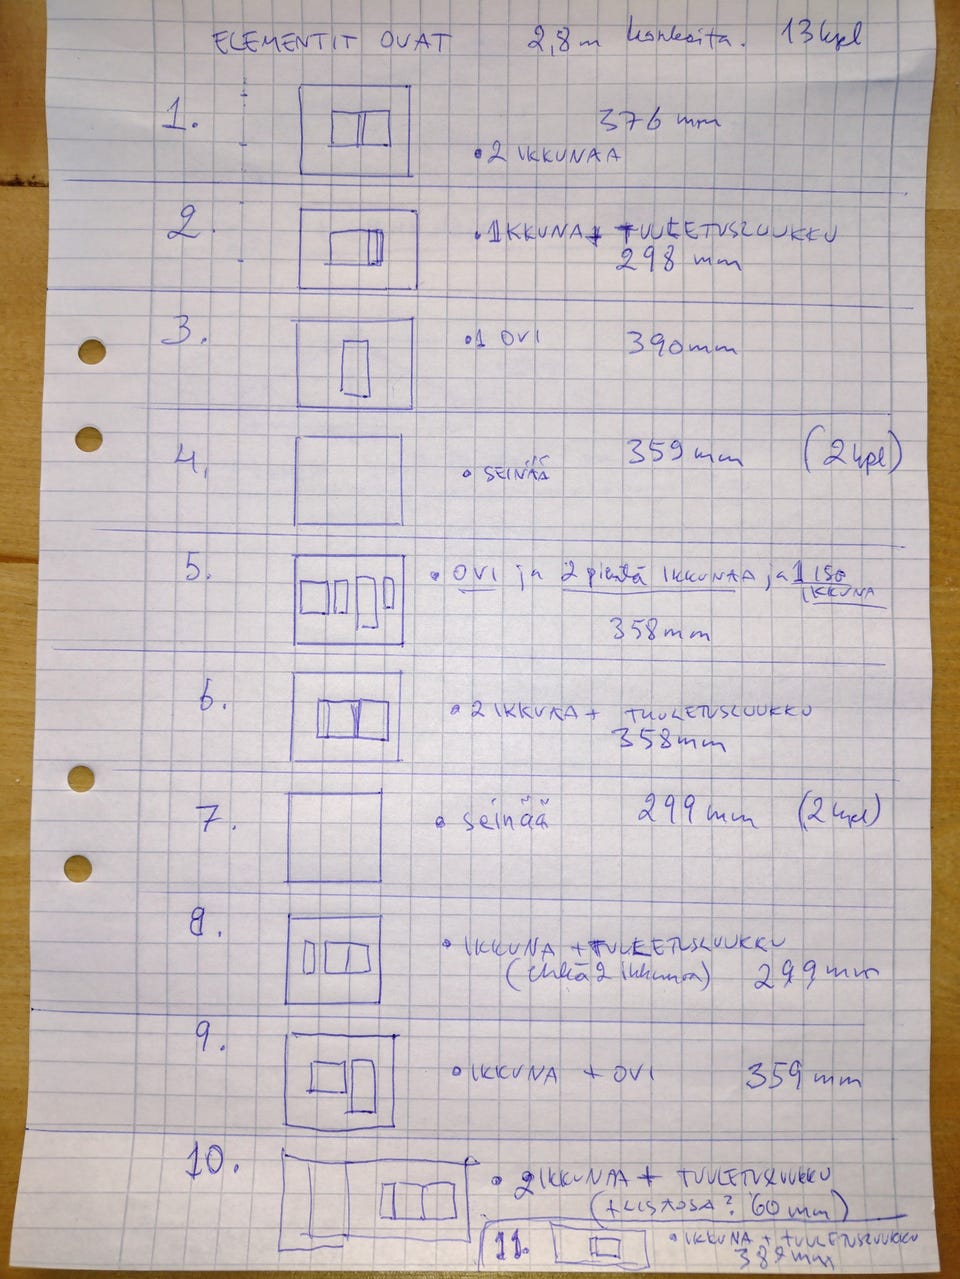 ELEMENTIT OVAT 2,8m korkeita. 13 kpl
1. 376 mm
• 2 IKKUNAA
2. • 1KKUNA + TUULETUSLUUKKU
298 mm
3. • 1 OVI 390mm
4. • SEINÄÄ 359 mm (2 kpl)
5. • OVI ja 2 pientä IKKUNAA ja 1 ISO
IKKUNA
358mm
6. • 2 IKKUNA + TUULETUSLUUKKU
358mm
7. • seinää 299 mm (2 kpl)
8. • IKKUNA + TUULETUSLUUKKU
(ehkä 2 ikkunaa) 299 mm
9. • IKKUNA + OVI 359 mm
10. • 2IKKUNAA + TUULETUSLUUKKU
(+LISTOSA? 60 mm)
11. • IKKUNA + TUULETUSLUUKKU
389mm